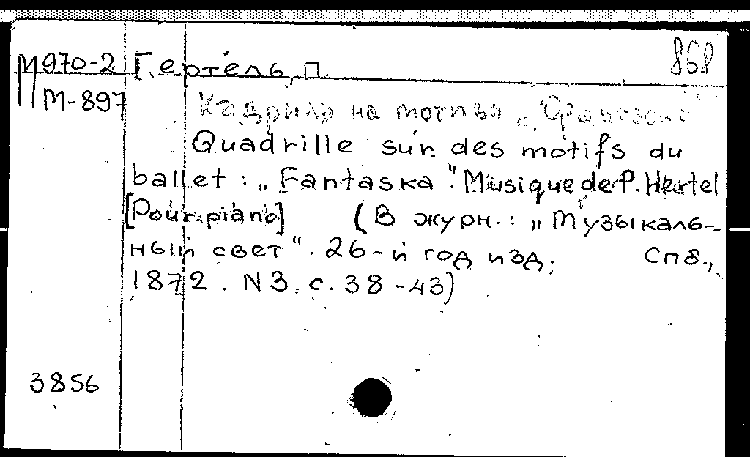 М970-2 Гертель, П. 868
М-897
Кадриль на мотивы „
Quadrille sur des motifs du
ballet: „Fantaska". Musique de P. Hertel
[Pour piano] (В журн.: „Музыкаль-
ный свет". 26-й год изд. СПб.,
1872. N3. с. 38-43)
3856